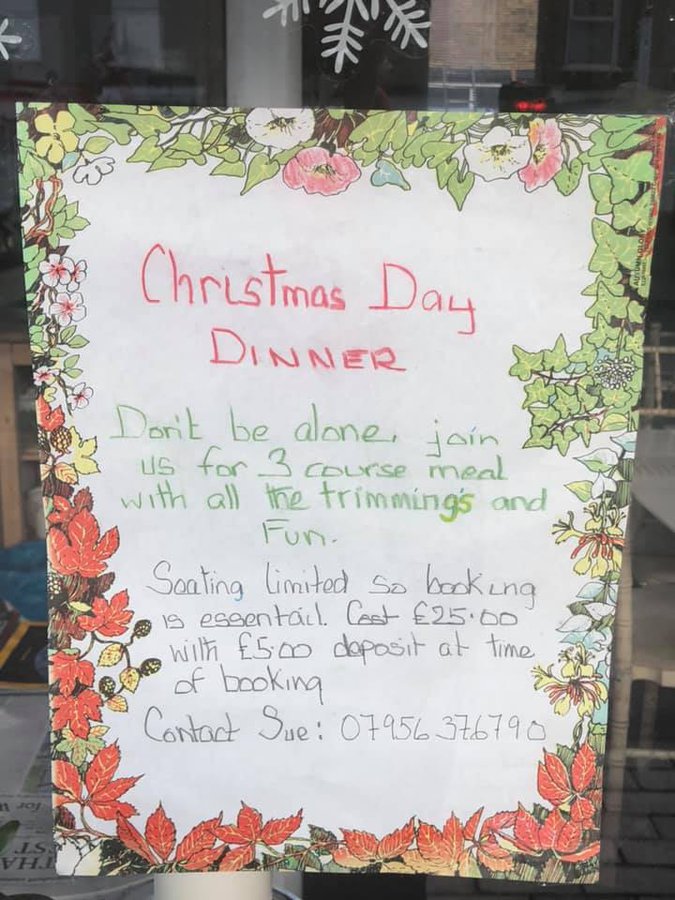 Christmas Day
DINNER
Don't be alone, join
us for 3 course meal
with all the trimming's and
Fun.
Seating limited so booking
is essentail. Cost £25.00
with £5.00 deposit at time
of booking
Contact Sue: 07956 376790